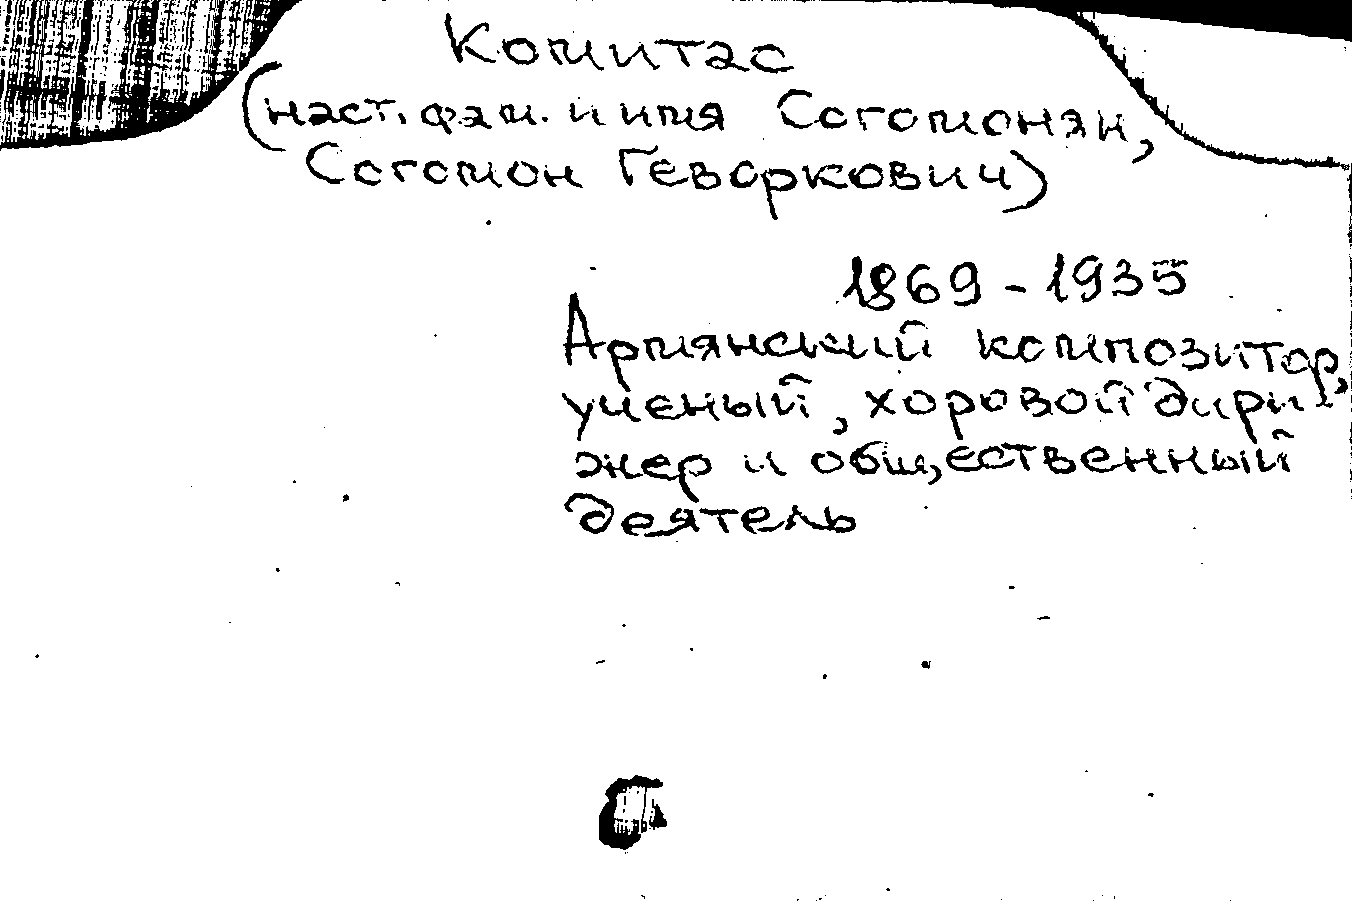 Комитас
(наст. фам. и имя Согомонян,
Согомон Геворкович)
1869 - 1935
Армянский композитор,
ученый, хоровой дири-
жер и общественный
деятель